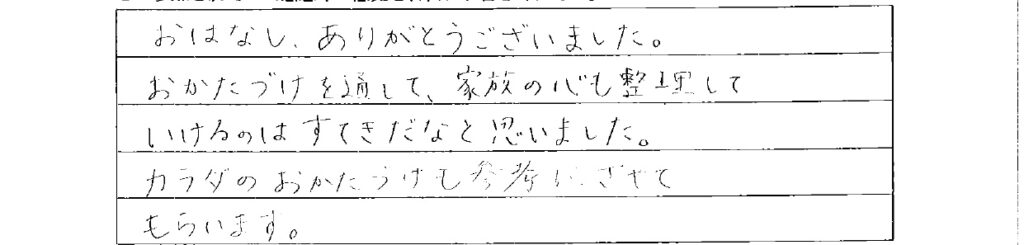 おはなし、ありがとうございました。
おかたづけを通して、家族の心も整理して
いけるのはすてきだなと思いました。
カラダのおかたづけも参考にさせて
もらいます。